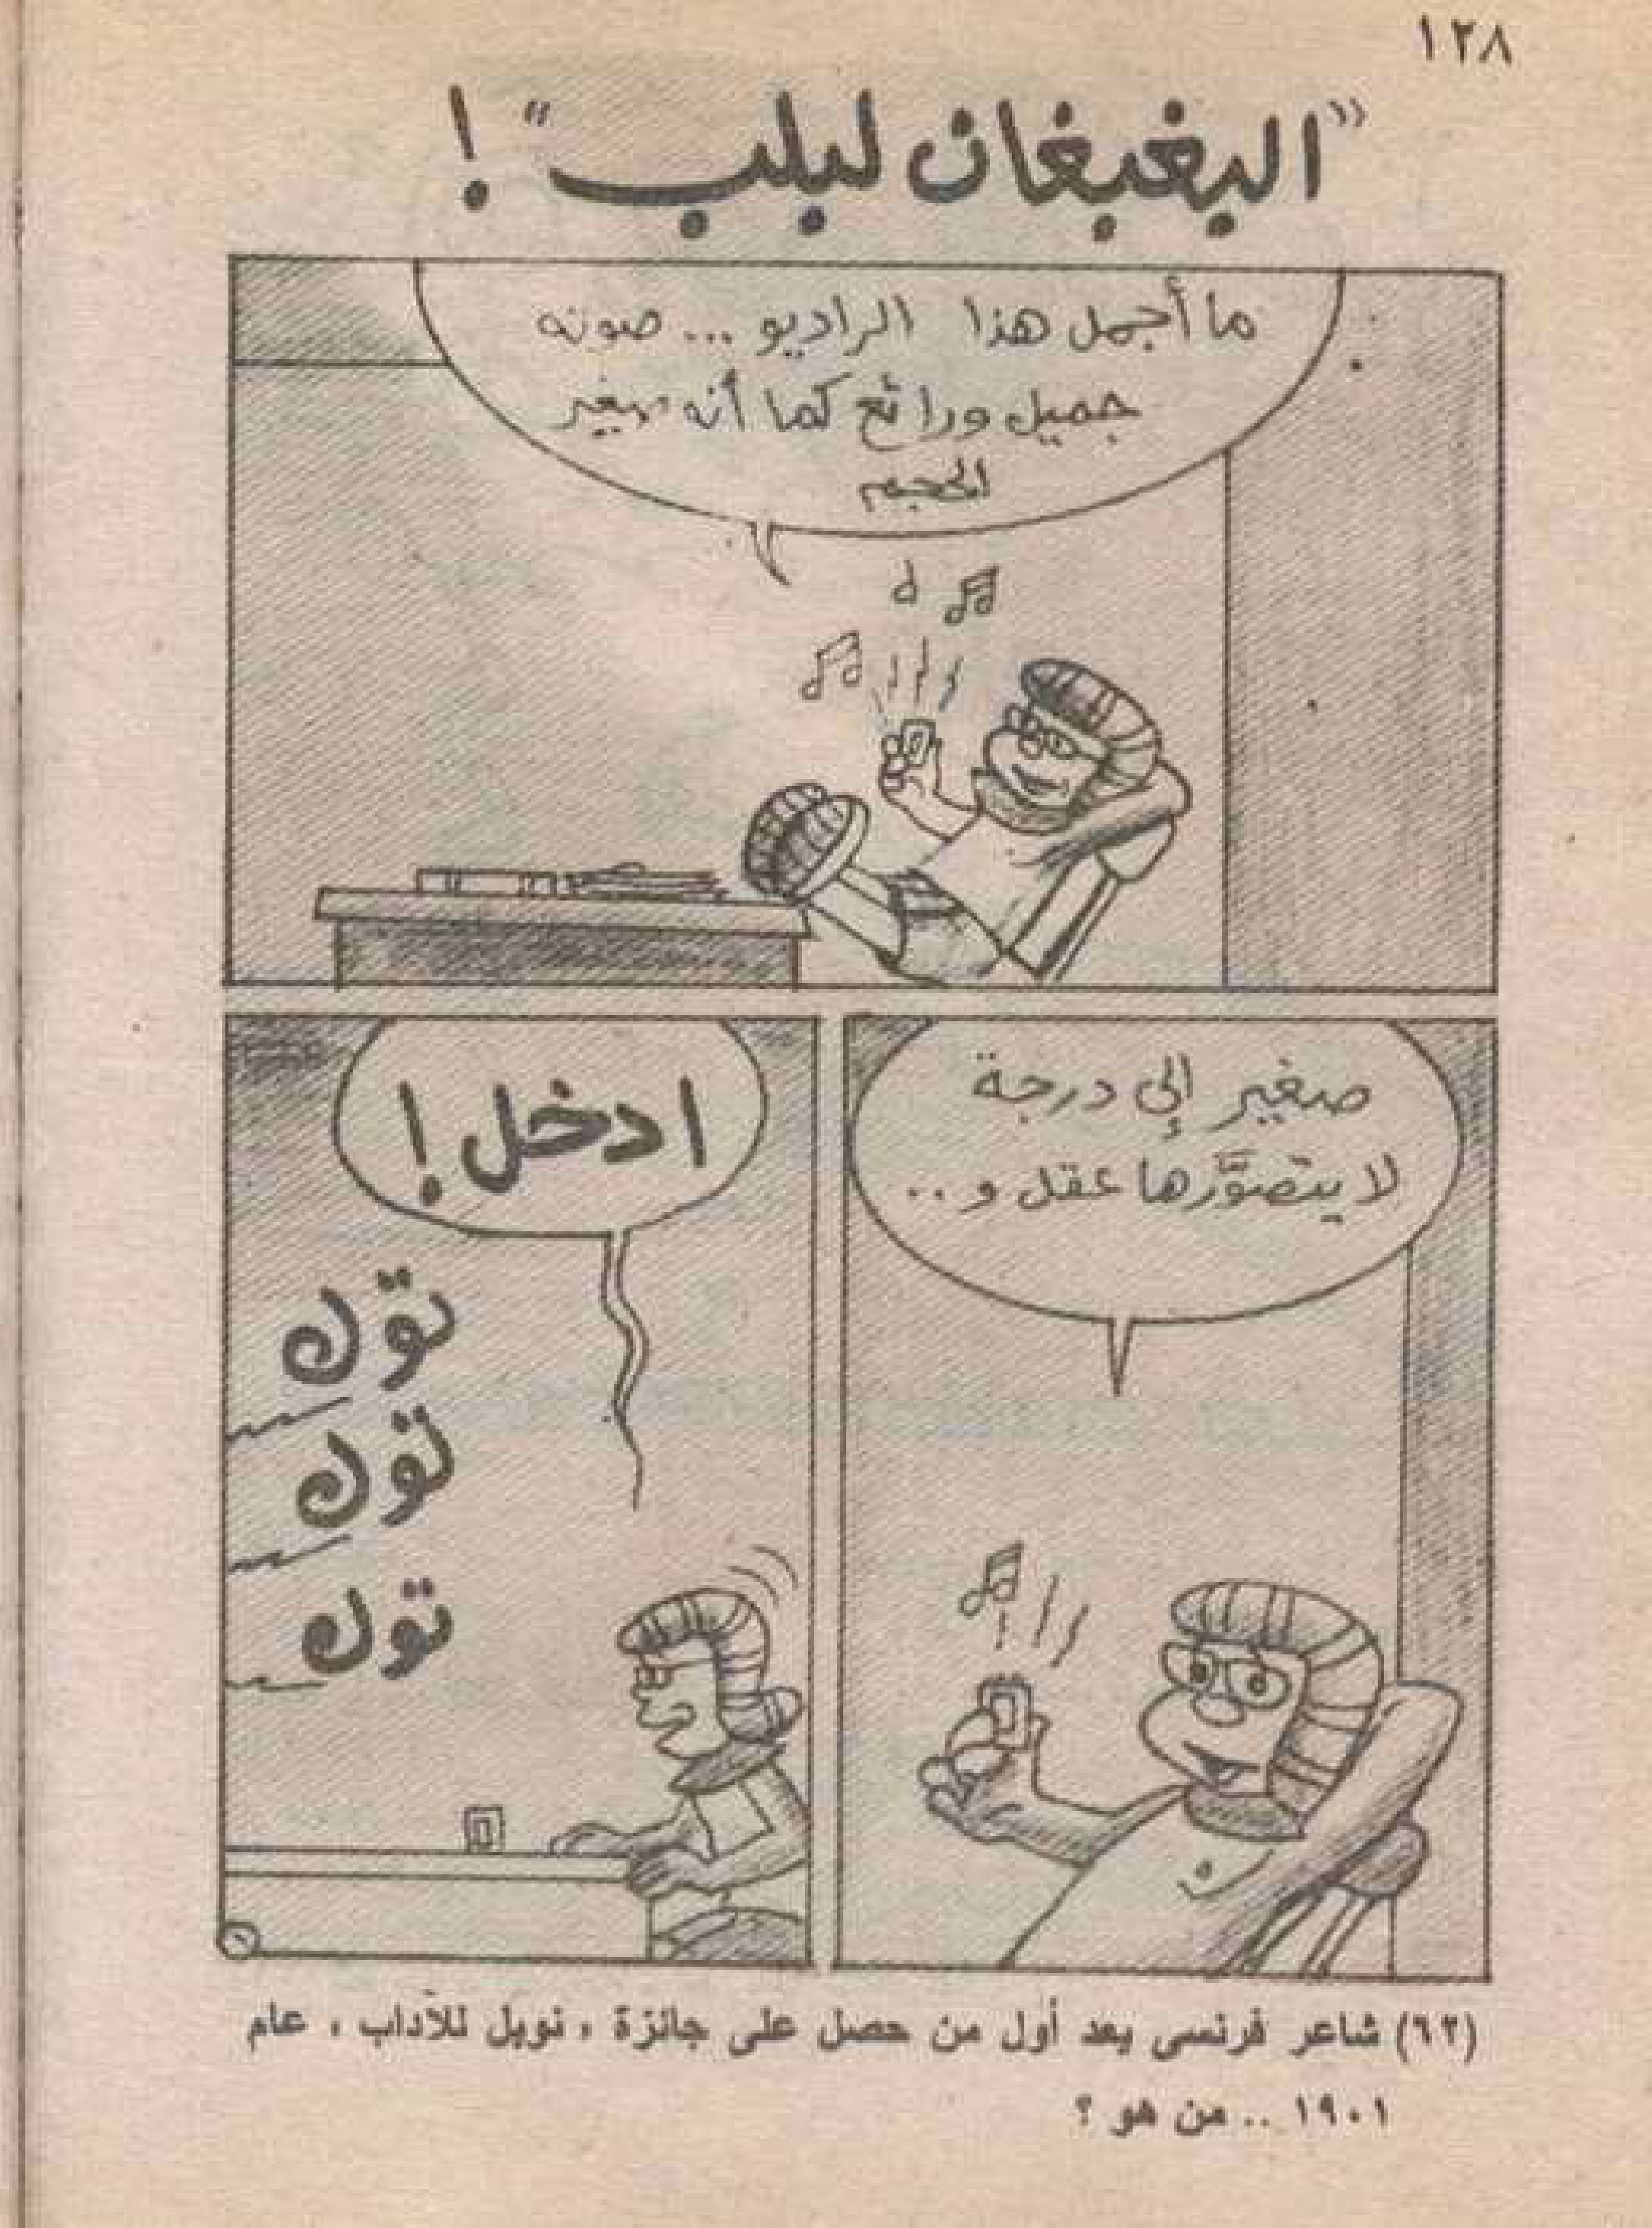 ١٢٨
"البغبغان لبلب" !
ما أجمل هذا الراديو ... صوته
جميل ورائع كما أنه صغير
الحجم
صغير إلى درجة
لا يتصوَّرها عقل و ..
ادخل !
توك
توك
توك
١
(٦٢) شاعر فرنسى يعد أول من حصل على جائزة ، نوبل للآداب ، عام
١٩٠١ .. من هو ؟